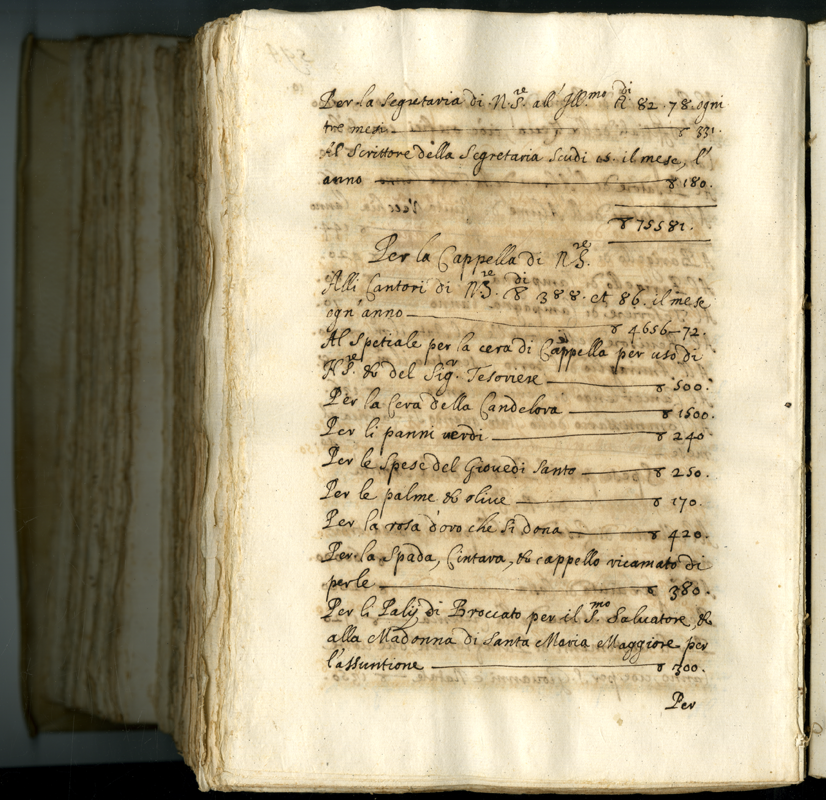 Per la Segretaria di N. S.re all' Ill.mo di ▽ 82. 78. ogni
tre mesi ▽ 331.
Al Scrittore della Segretaria Scudi 15. il mese, l'
anno ▽ 180.
▽ 75581.
Per la Cappella di N. S.re
Alli Cantori di N. S.re di ▽ 388. et 86. il mese
ogn'anno ▽ 4656-72.
Al Spetiale per la cera di Cappella per uso di
N. S.re & del Sig.r Tesoriere ▽ 500.
Per la Cera della Candelora ▽ 1500.
Per li panni verdi ▽ 240
Per le Spese del Giovedi Santo ▽ 250.
Per le palme & olive ▽ 170.
Per la rosa d'oro che si dona ▽ 420.
Per la Spada, Cintura, & cappello ricamato di
perle ▽ 380.
Per li Palij di Broccato per il S.mo Salvatore, &
alla Madonna di Santa Maria Maggiore per
l'assuntione ▽ 300.
Per